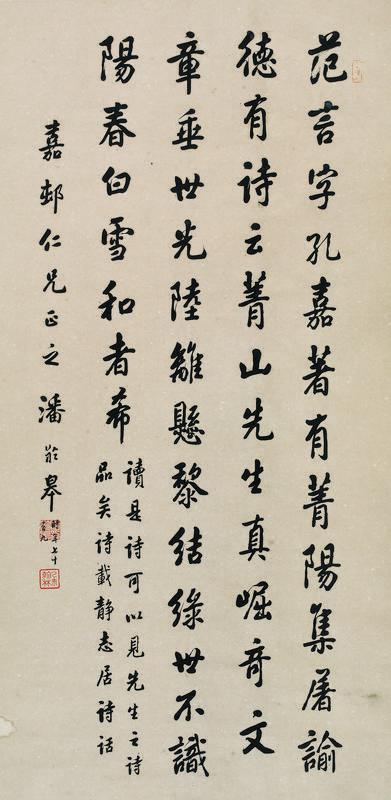 范言字孔嘉著有菁陽集屠諭
德有詩云菁山先生真崛奇文
章垂世光陸離懸黎結綠世不識
陽春白雪和者希
讀是詩可以見先生之詩
品矣詩載靜志居詩話
嘉邨仁兄正之潘齡皋
時年七十